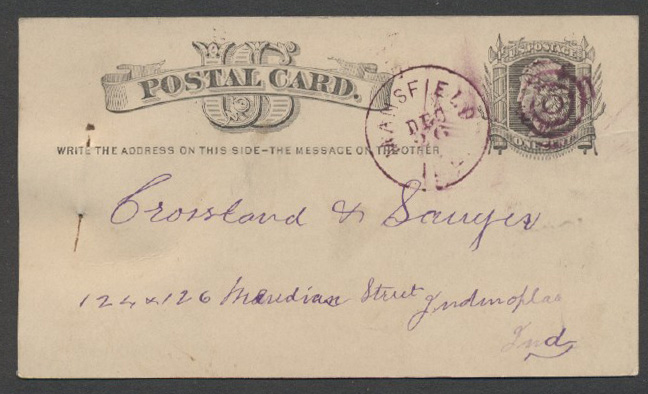 U.S. POSTAGE
US
POSTAL CARD.
MANSFIELD
DEC
26
WRITE THE ADDRESS ON THIS SIDE–THE MESSAGE ON THE OTHER
ONE CENT
Crossland & Sawyer
124 & 126 Meridian Street Indinoplas
Ind